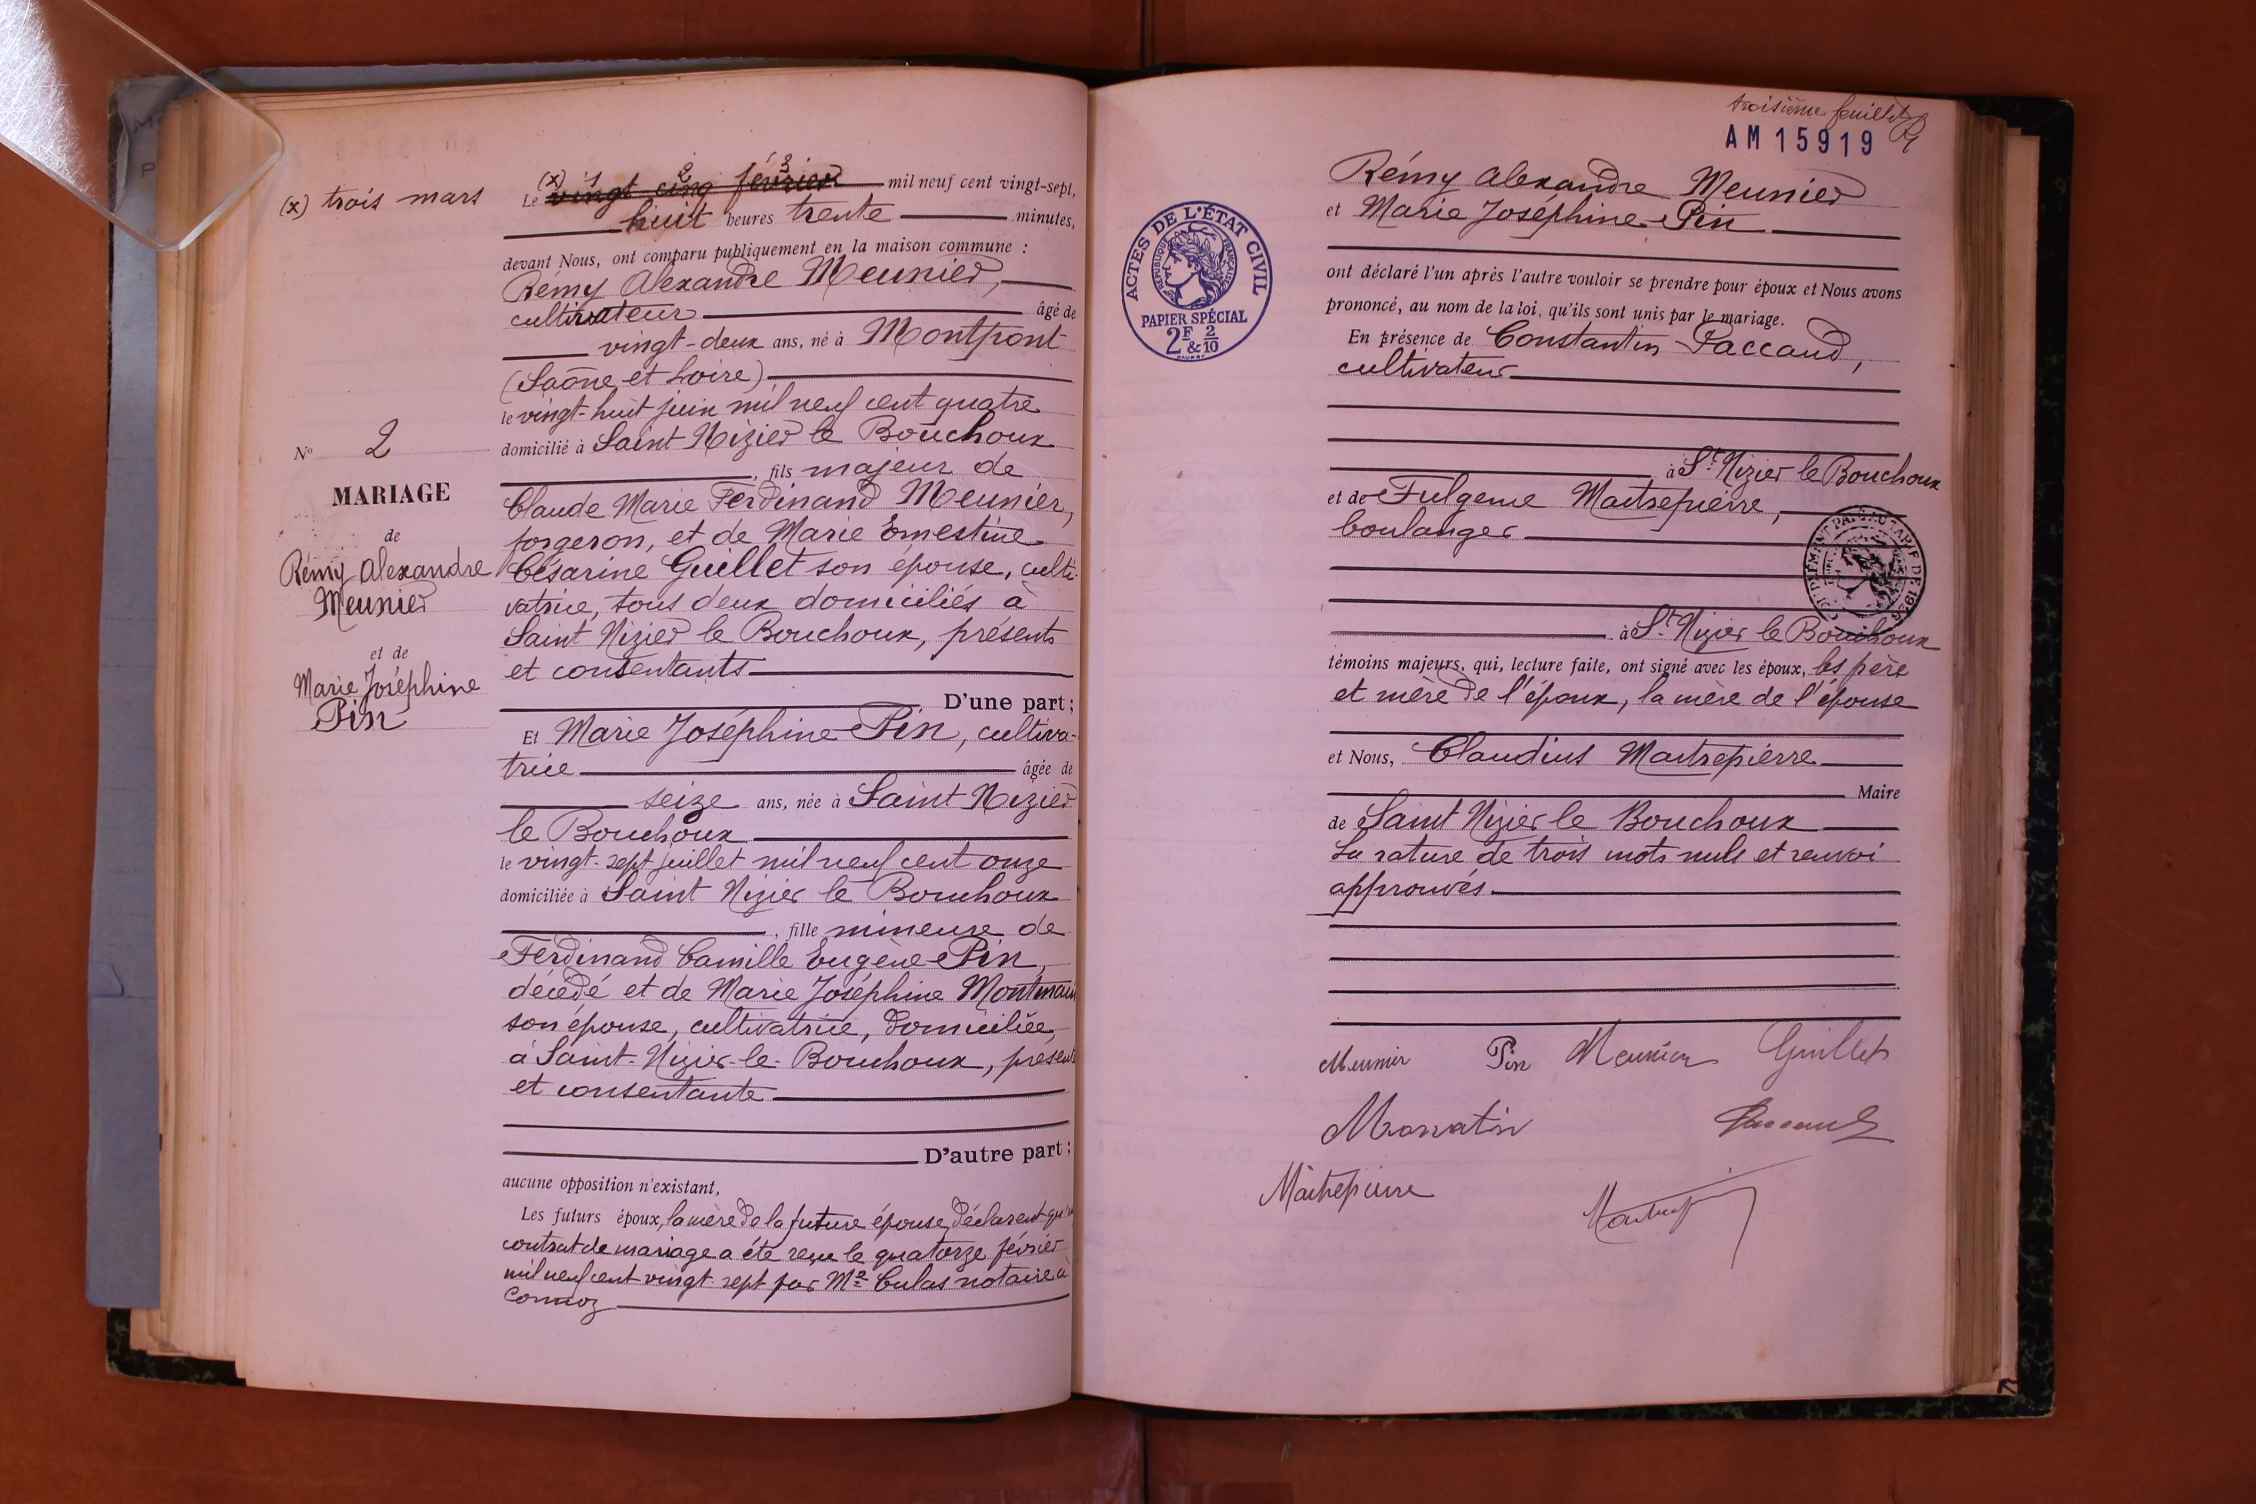 (x) trois mars
Nº 2
MARIAGE
de
Rémy Alexandre
Meunier
et de
Marie Joséphine
Pin
(x) 1 2 3
Le vingt cinq février mil neuf cent vingt-sept,
huit heures trente minutes,
devant Nous, ont comparu publiquement en la maison commune :
Rémy Alexandre Meunier,
cultivateur âgé de
vingt-deux ans, né à Montpont
(Saône et Loire)
le vingt-huit juin mil neuf cent quatre
domicilié à Saint Nizier le Bouchoux
, fils majeur de
Claude Marie Ferdinand Meunier,
forgeron, et de Marie Ernestine
Césarine Guillet son épouse, culti-
vatrice, tous deux domiciliés à
Saint Nizier le Bouchoux, présents
et consentants
D'une part ;
Et Marie Joséphine Pin, cultiva-
trice âgée de
seize ans, née à Saint Nizier
le Bouchoux
le vingt-sept juillet mil neuf cent onze
domiciliée à Saint Nizier le Bouchoux
, fille mineure de
Ferdinand Camille Eugène Pin,
décédé et de Marie Joséphine
son épouse, cultivatrice, domiciliée,
à Saint-Nizier-le-Bouchoux, présente
et consentante
D'autre part ;
aucune opposition n'existant,
Les futurs époux, la mère de la future épouse, déclarent qu'un
contrat de mariage a été reçu le quatorze février
mil neuf cent vingt-sept par Me Culas notaire à
Cormoz
troisième feuillet
AM 15919
ACTES DE L'ÉTAT CIVIL
RÉPUBLIQUE FRANÇAISE
PAPIER SPÉCIAL
2F & 2/10
Rémy Alexandre Meunier
et Marie Joséphine Pin
ont déclaré l'un après l'autre vouloir se prendre pour époux et Nous avons
prononcé, au nom de la loi, qu'ils sont unis par le mariage.
En présence de Constantin Paccaud,
cultivateur
à St. Nizier le Bouchoux
et de Fulgence Maitrepierre,
boulanger
à St. Nizier le Bouchoux
témoins majeurs, qui, lecture faite, ont signé avec les époux, les père
et mère de l'époux, la mère de l'épouse
et Nous, Claudius Maitrepierre
Maire
de Saint Nizier le Bouchoux
La rature de trois mots nuls et renvoi
approuvés
Meunier Pin Meunier Guillet
Paccaud
Maitrepierre